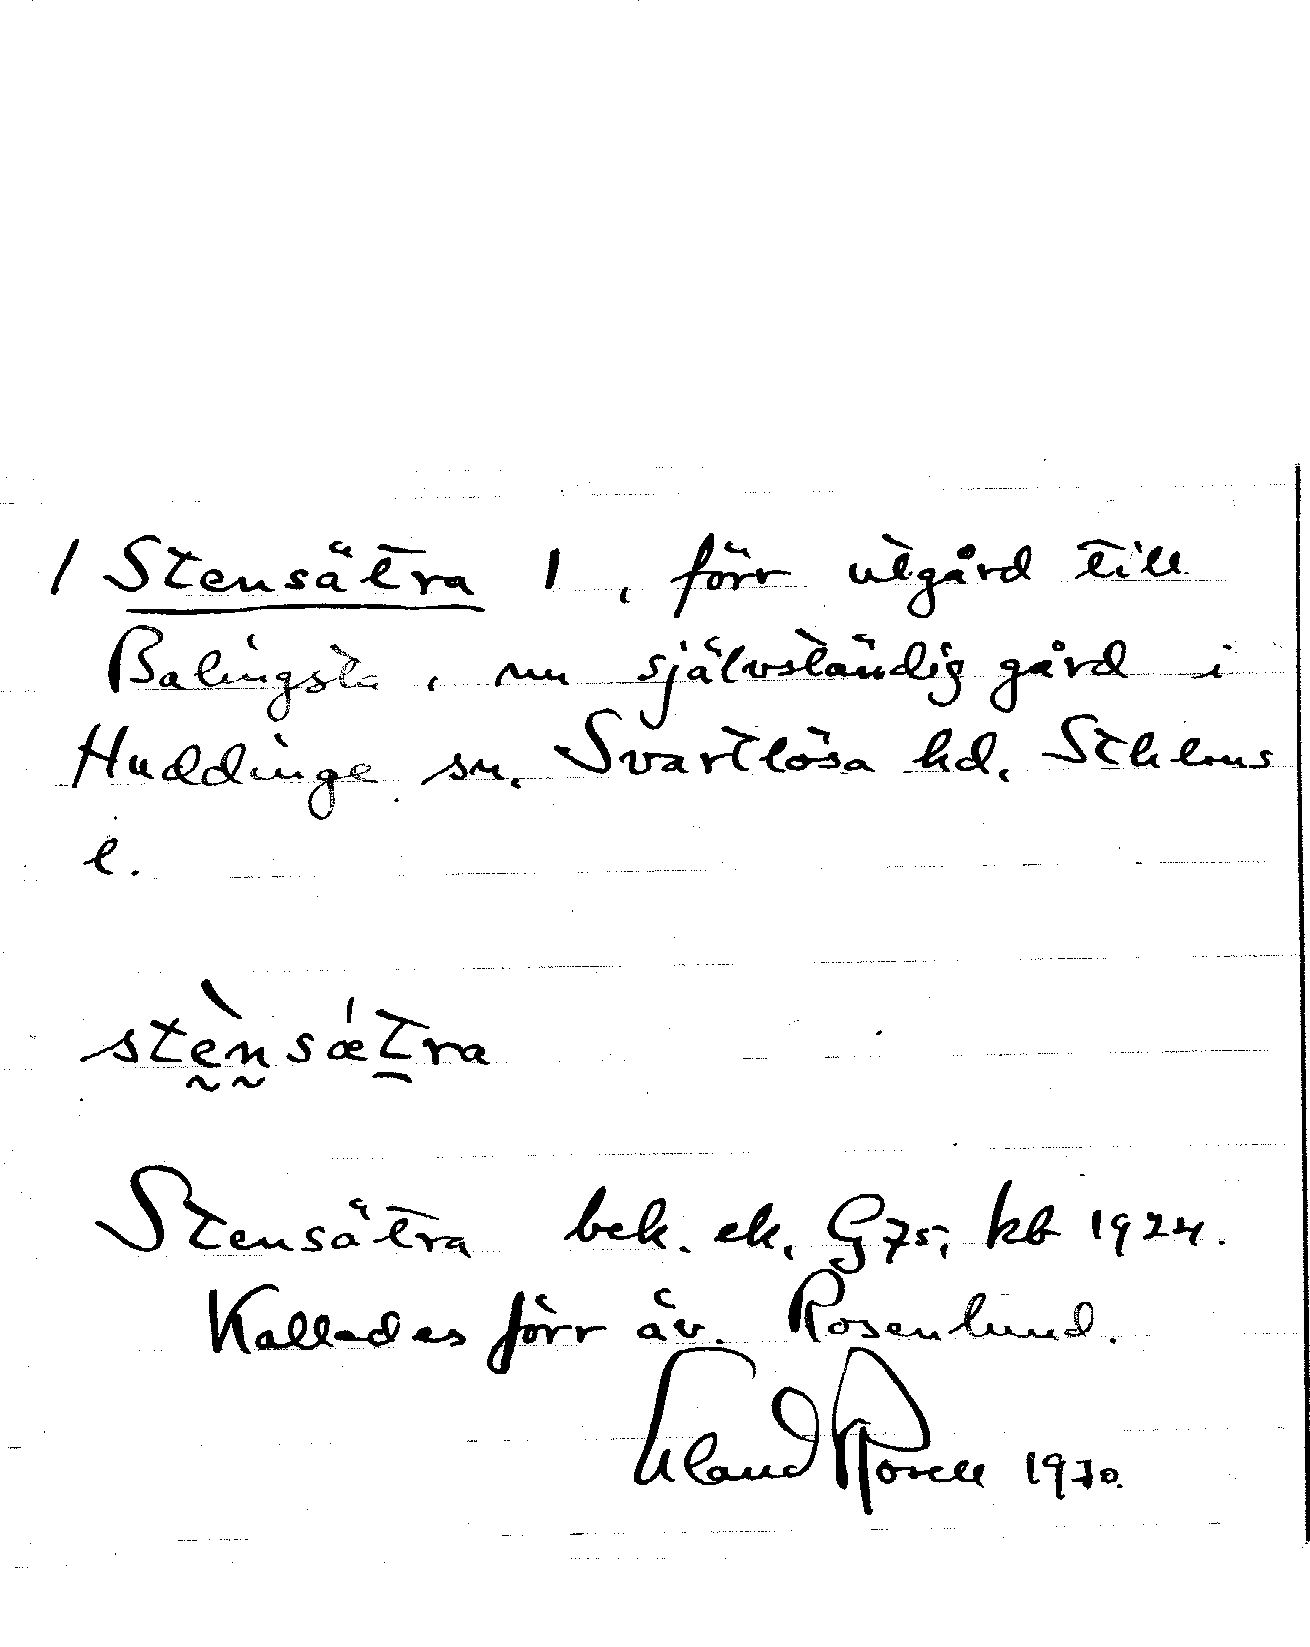 / Stensätra 1, förr utgård till
Balingsta, nu självständig gård i
Huddinge sn. Svartlösa hd. Sthlms
l.
stènsætra
Stensätra bek. ek. G75; kb 1924.
Kallades förr äv. Rosenlund.
1970.